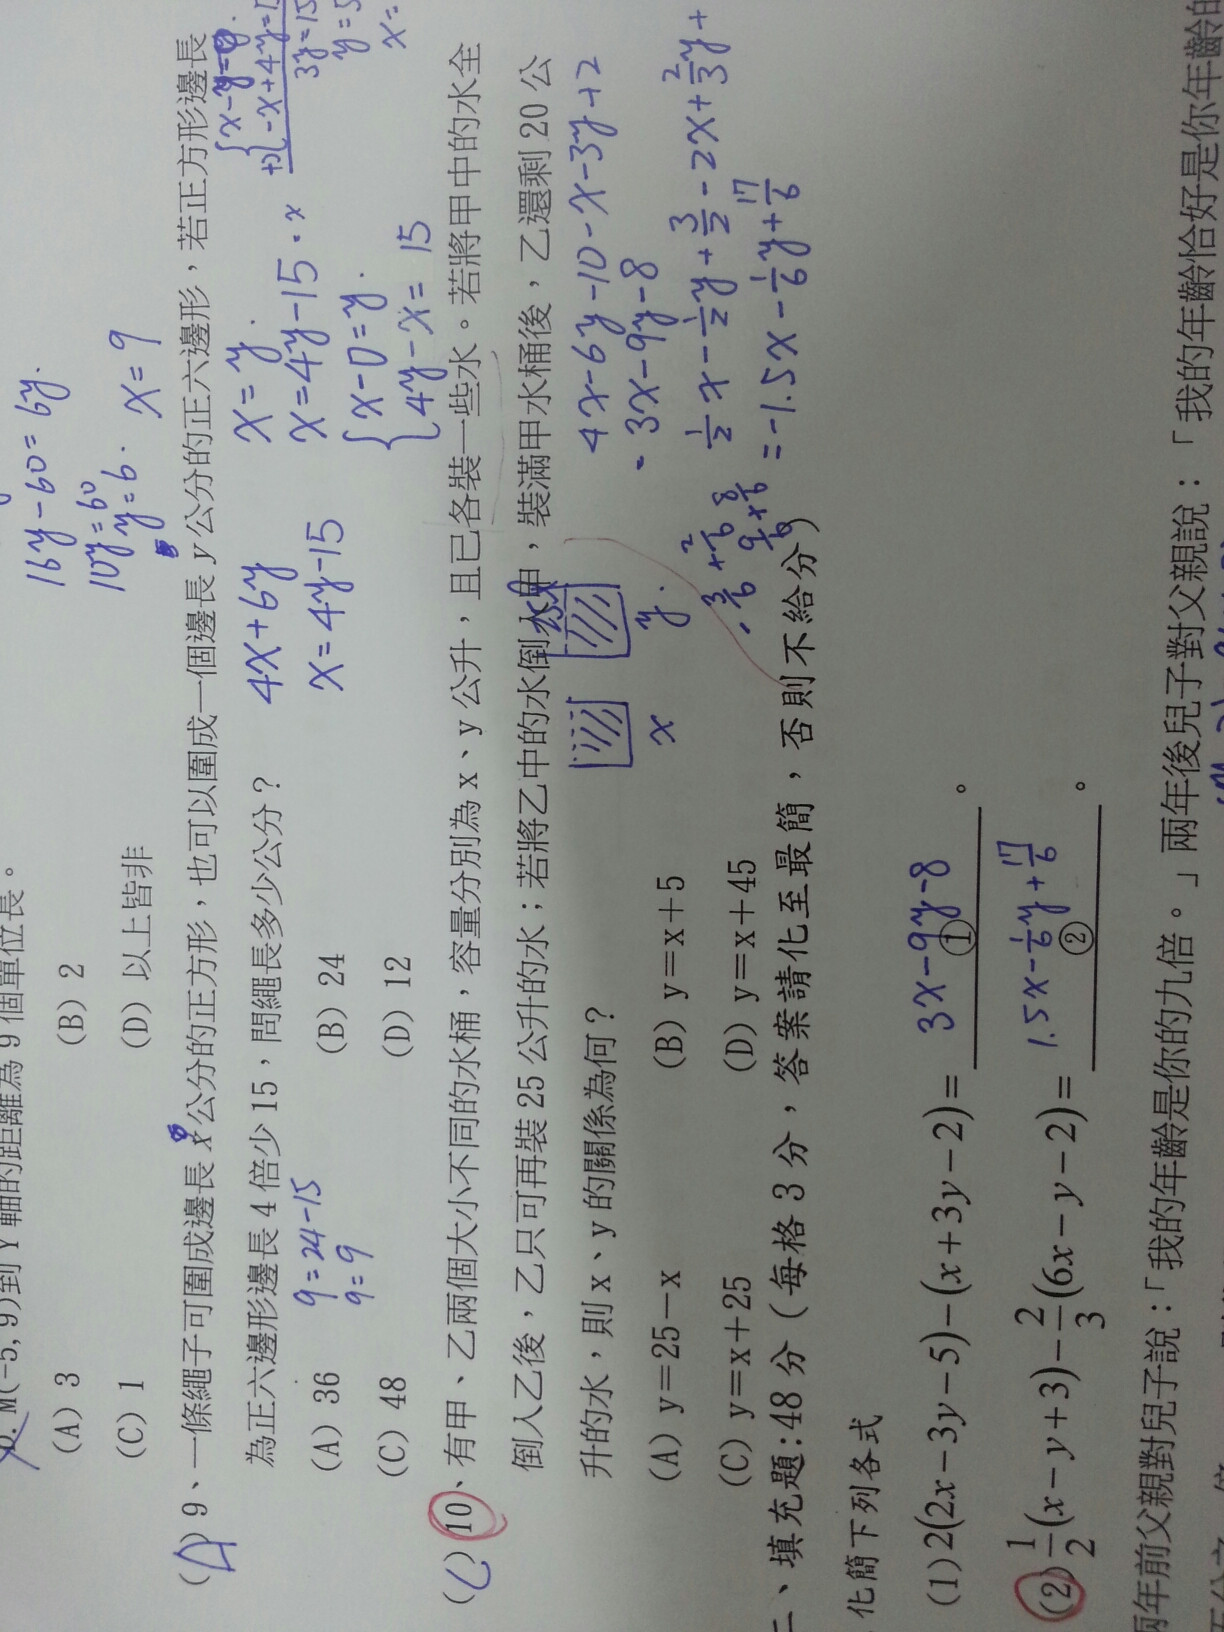 16y-60=6y.
10y=60
y=6.
x=9
M(-5, 9)到Y軸的距離為9個單位長。
(A) 3 (B) 2
(C) 1 (D) 以上皆非
( ) 9、一條繩子可圍成邊長x公分的正方形，也可以圍成一個邊長y公分的正六邊形，若正方形邊長
為正六邊形邊長4倍少15，問繩長多少公分？ 4x+6y x=y.
9=24-15 x=4y-15 x=4y-15
9=9
(A) 36 (B) 24
(C) 48 (D) 12
x-0=y.
4y-x=15
-x+4y=1
3y=15
(C) 10、有甲、乙兩個大小不同的水桶，容量分別為x、y公升，且已各裝一些水。若將甲中的水全
倒入乙後，乙只可再裝25公升的水；若將乙中的水倒入甲，裝滿甲水桶後，乙還剩20公
升的水，則x、y的關係為何？
x y.
(A) y=25-x (B) y=x+5
(C) y=x+25 (D) y=x+45
4x-6y-10-x-3y+2
3x-9y-8
1/2x-1/2y+3/2-2x+2/3y+
=-1.5x-1/6y+17/6
二、填充題:48分（每格3分，答案請化至最簡，否則不給分）
化簡下列各式
(1) 2(2x-3y-5)-(x+3y-2)= 3x-9y-8 ① 。
(2) 1/2(x-y+3)-2/3(6x-y-2)= 1.5x-1/6y+17/6 ② 。
兩年前父親對兒子說：「我的年齡是你的九倍。」兩年後兒子對父親說：「我的年齡恰好是你年齡的